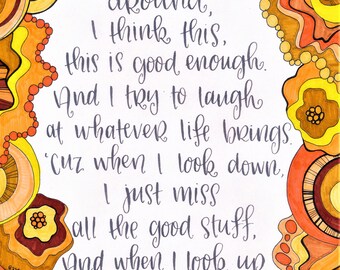 around,
I think this,
this is good enough.
And I try to laugh
at whatever life brings.
'cuz when I look down,
I just miss
all the good stuff,
And when I look up